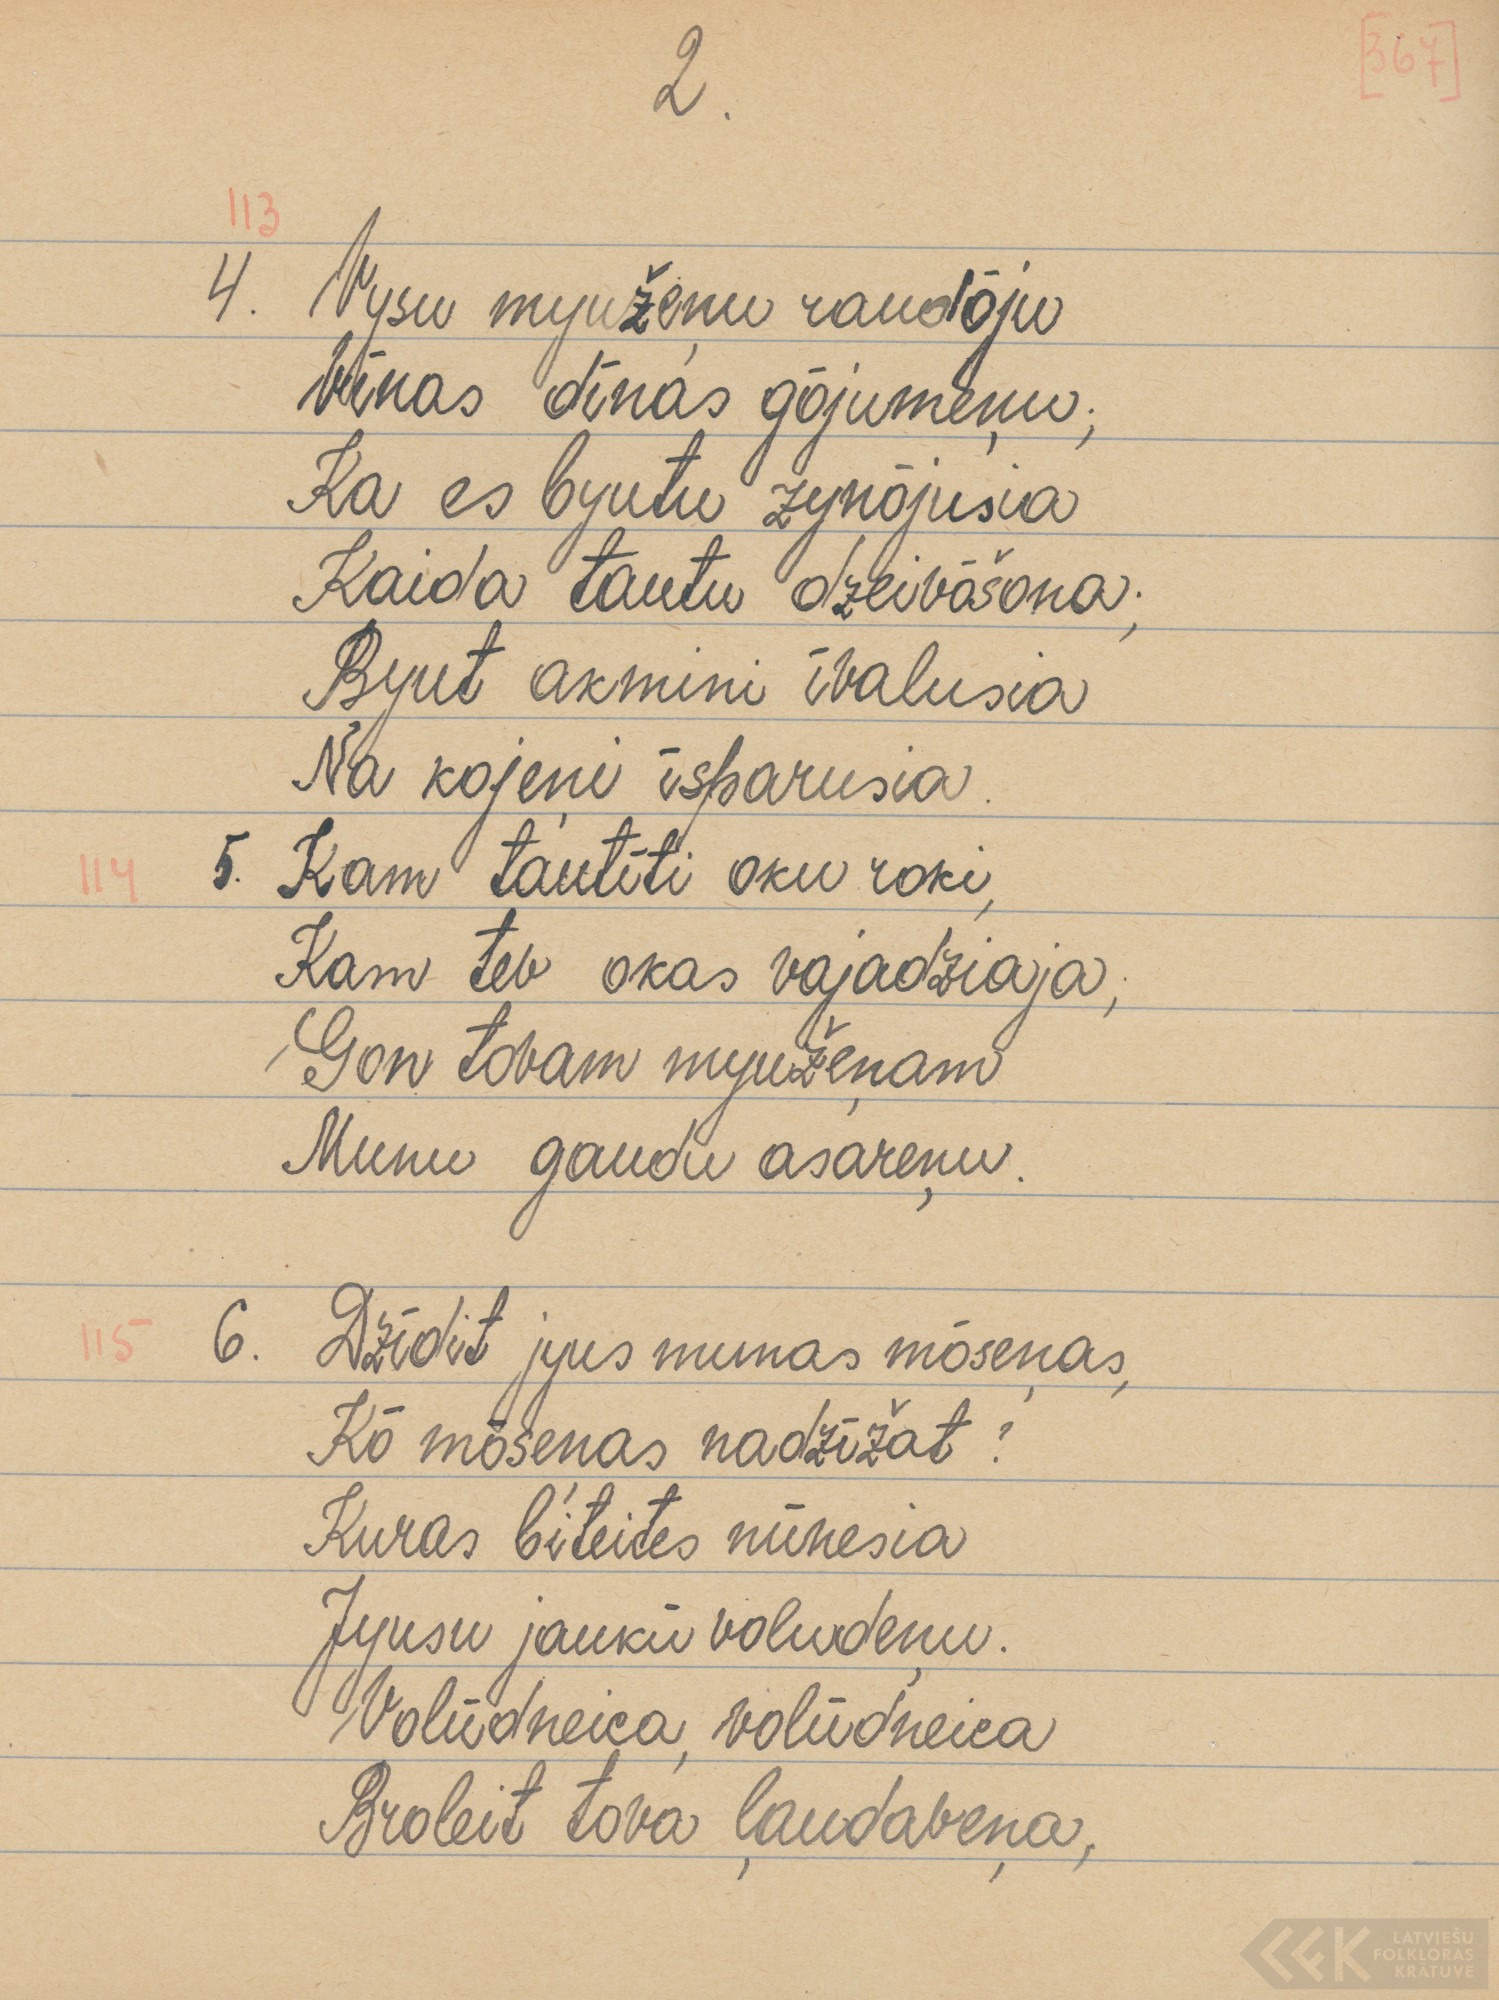 2.
[367]
113
4. Vysu myužeņu raudōju
Vīnas dīnas gōjumeņu;
Ka es byutu zynōjusia
Kaida tautu dzeivōšona;
Byut akmini īvalusia
Na kojeņi īsparusia.
114
5. Kam tautīti oku roki,
Kam tev okas vajadziaja;
Gon tovam myužeņam
Munu gaudu asareņu.
115
6. Dzīdit jyus munas mōseņas,
Kō mōseņas nadzīžat?
Kuras biteites nūnesia
Jyusu jaukū volūdeņu.
Volūdneica, volūdneica
Broleit tova ļaudaveņa,
LATVIEŠU
FOLKLORAS
KRĀTUVE